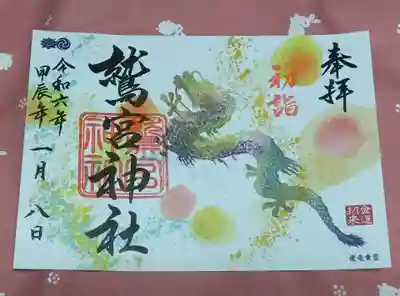 奉拝
初詣
鷲宮神社
令和六年
甲辰年
一月八日
金運
招来